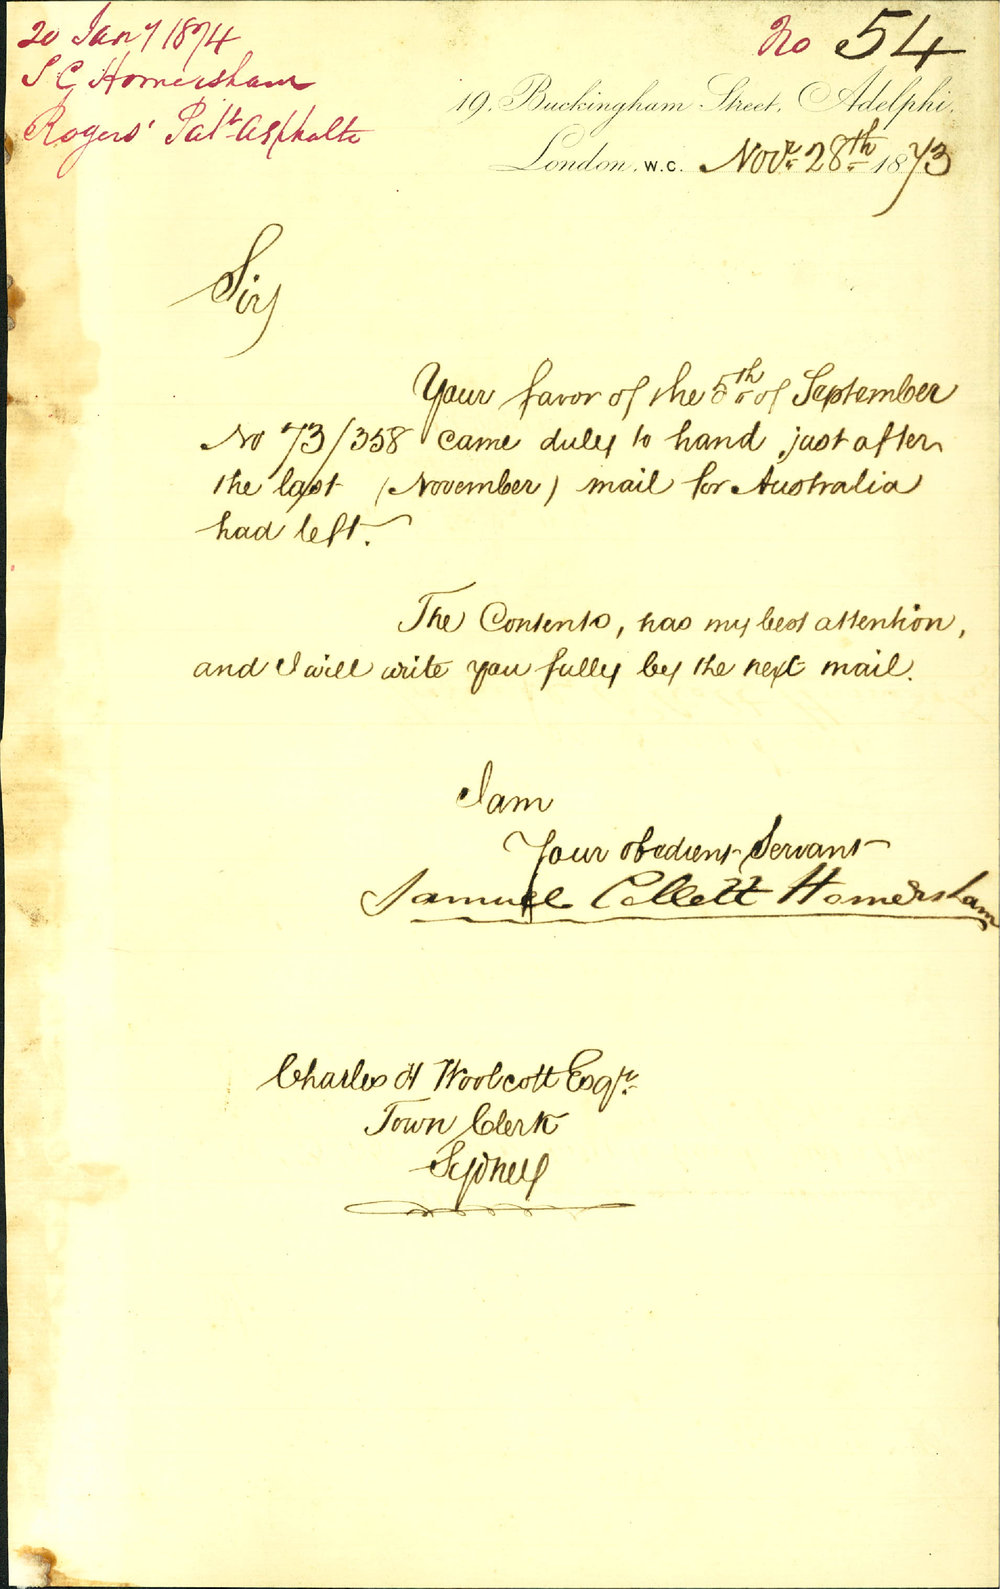 20 Jany 1874
S C Homersham
Rogers' Patt Asphalte
No 54
19, Buckingham Street, Adelphi,
London, W.C. Novr. 28th 1873
Sir
Your favor of the 5th of September
No 73/358 came duly to hand just after
the last (November) mail for Australia
had left.
The Contents, has my best attention,
and I will write you fully by the next mail.
I am
Your obedient Servant
Samuel Collett Homersham
Charles H Woolcott Esqr.
Town Clerk
Sydney